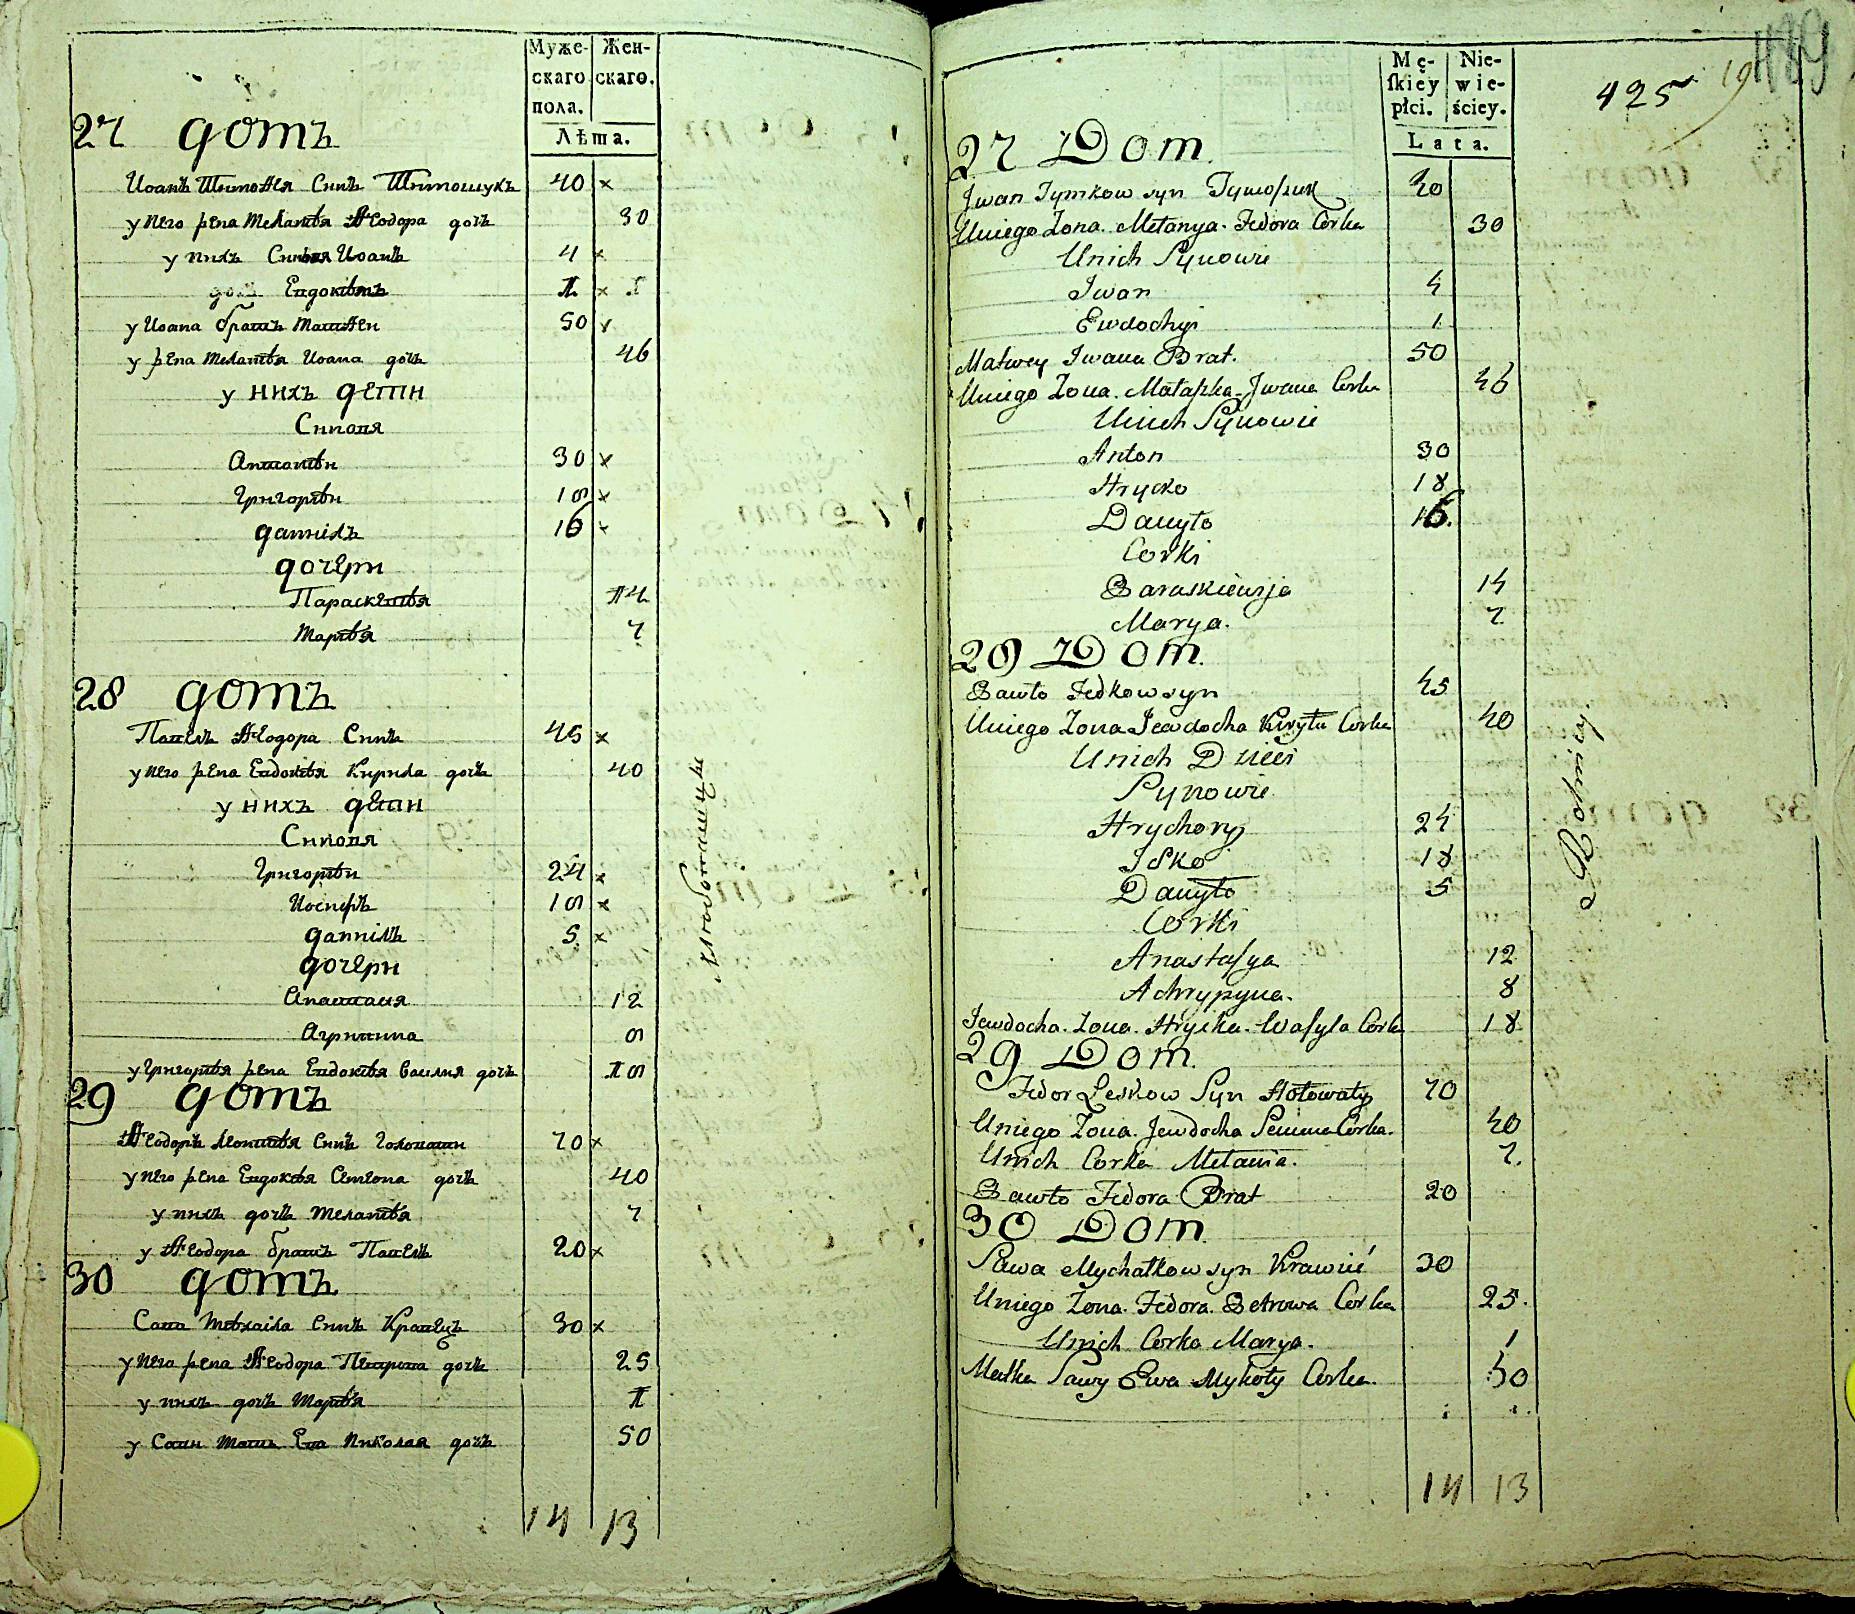 Муже- Жен-
скаго скаго.
пола.
Лѣта.
27 домъ
Иоанъ Тимофея Синъ Тимошукъ 40 ×
у него жена Меланія Феодора дочъ 30
у нихъ Синовя Иоанъ 4 ×
дочъ Евдокіѣмъ 1 × 1
у Иоана братъ Матфей 50 ×
у жена Меланія Иоана дочъ 46
у нихъ дети
Синовя
Антоній 30 ×
Григорій 18 ×
даніилъ 16 ×
дочери
Параскевія 14
Марія 7
28 домъ
Павелъ Феодора Синъ 45 ×
у него жена Евдокія Кирила дочъ 40
у нихъ дети
Синовя
Григорій 24 ×
Иосифъ 18 ×
даніилъ 5 ×
дочери
Анастасия 12
Агрипина 8
у Григорія жена Евдокія Василия дочъ 18
29 домъ
Феодоръ Леонтія Синъ Головатий 70 ×
у него жена Евдокія Симеона дочъ 40
у нихъ дочъ Меланія 7
у Феодора братъ Павелъ 20 ×
30 домъ
Сава Міхаіла Синъ Кравецъ 30 ×
у него жена Феодора Петрова дочъ 25
у нихъ дочъ Марія 1
у Сави Мать Ева Николая дочъ 50
14 13
Хлѣботавцы
Mę- Nie-
skiey wie-
płci. ściey.
Lata.
425 19 489
27 Dom.
Jwan Tymkow syn Tymoszuk 40
Uniego Zona. Melanya. Fedora Corka 30
Unich Synowie
Jwan 4
Ewdochyi 1
Matwey Jwana Brat. 50
Uniego Zona. Małaszka. Jwana Corka 46
Unich Synowie
Anton 30
Hrycko 18
Danyło 16.
Corki
Paraskiewja 14
Marya. 7
28 Dom.
Pawło Fedkow syn 45
Uniego Zona Jewdocha Kiryła Corka 40
Unich Dzieci
Synowie
Hrychory 24
Jśko 18
Danyło 5
Corki
Anastasya 12
Achrypyna. 8
Jewdocha. Zona. Hryćka. Wasyla Cork 18
29 Dom.
Fedor Leskow Syn Hołowaty 70
Uniego Zona. Jewdocha Semena Corka. 40
Unich Corka Melania. 7.
Pawło Fedora Brat 20
30 Dom.
Sawa Mychałkow syn Krawieć 30
Uniego Zona. Fedora. Petrowa Corka 25.
Unich Corka Marya. 1
Matka Sawy Ewa Mykoły Corka. 50
14 13
Rolnicy